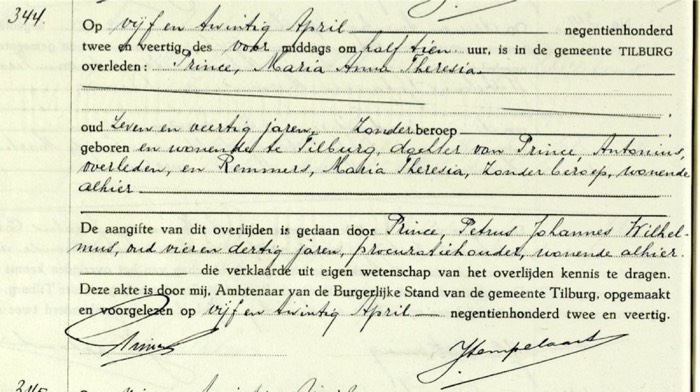 344.
Op vijf en twintig April negentienhonderd
twee en veertig, des voor middags om half tien uur, is in de gemeente TILBURG
overleden: Prince, Maria Anna Theresia
oud zeven en veertig jaren, Zonder beroep
geboren en wonende te Tilburg, dochter van Prince, Antonius,
overleden, en Remmers, Maria Theresia, zonder beroep, wonende
alhier
De aangifte van dit overlijden is gedaan door Prince, Petrus Johannes Wilhel-
mus, oud vier en dertig jaren, procuratiehouder, wonende alhier.
die verklaarde uit eigen wetenschap van het overlijden kennis te dragen.
Deze akte is door mij, Ambtenaar van de Burgerlijke Stand van de gemeente Tilburg, opgemaakt
en voorgelezen op vijf en twintig April negentienhonderd twee en veertig.
Prince